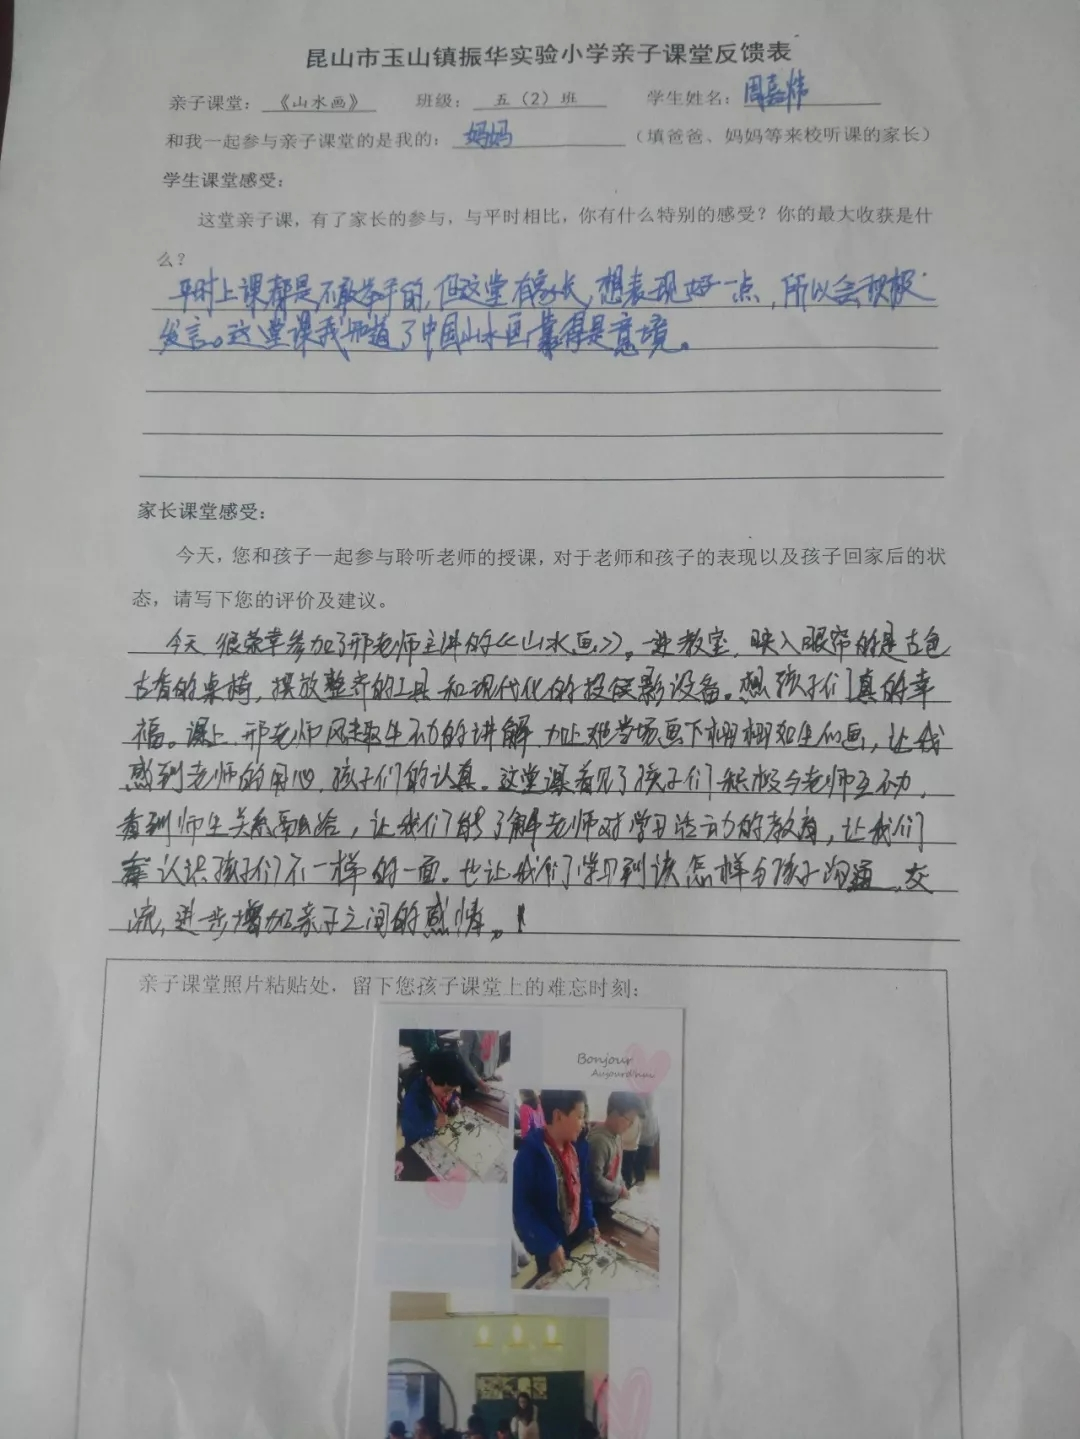 昆山市玉山镇振华实验小学亲子课堂反馈表
亲子课堂：《山水画》 班级：五（2）班 学生姓名：周嘉炜
和我一起参与亲子课堂的是我的：妈妈（填爸爸、妈妈等来校听课的家长）
学生课堂感受：
这堂亲子课，有了家长的参与，与平时相比，你有什么特别的感受？你的最大收获是什
么？
平时上课都是不敢举手的，但这堂有家长，想表现好一点，所以会积极
发言。这堂课我知道了中国山水画靠得是意境。
家长课堂感受：
今天，您和孩子一起参与聆听老师的授课，对于老师和孩子的表现以及孩子回家后的状
态，请写下您的评价及建议。
今天很荣幸参加了邢老师主讲的《山水画》。一进教室，映入眼帘的是古色
古香的桌椅，摆放整齐的工具和现代化的投影设备。想孩子们真的幸
福。课上，邢老师风趣生动的讲解，加上她当场画下栩栩如生的画，让我
感到老师的用心，孩子们的认真。这堂课看见了孩子们积极与老师互动，
看到师生关系融洽，让我们能了解老师对学习活动的教育，让我们
认识孩子们不一样的一面。也让我们学习到该怎样与孩子沟通，交
流，进步增加亲子之间的感情。！
亲子课堂照片粘贴处，留下您孩子课堂上的难忘时刻：
Bonjour
Aujourd'hui